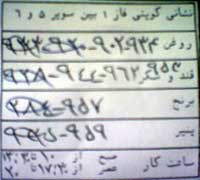 نشانی کوپنی فاز ۱ بین سوپر ۵ و ۶
روغن ۹۰۲-۹۳۴
قند و شکر ۹۴۴-۹۶۲-۹۵۳
برنج ۹۵۷
پنیر ۹۵۹
ساعت کار صبح از ۱۰ تا ۱۳:۳۰
عصر از ۱۷:۳۰ تا ۲۰